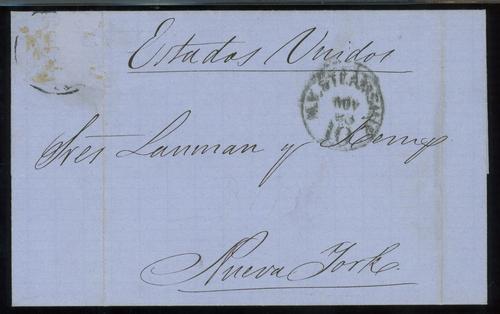 Estados Unidos
N.Y. STEAMSHIP
NOV
10
Sres Lanman y Kemp
Nueva York.